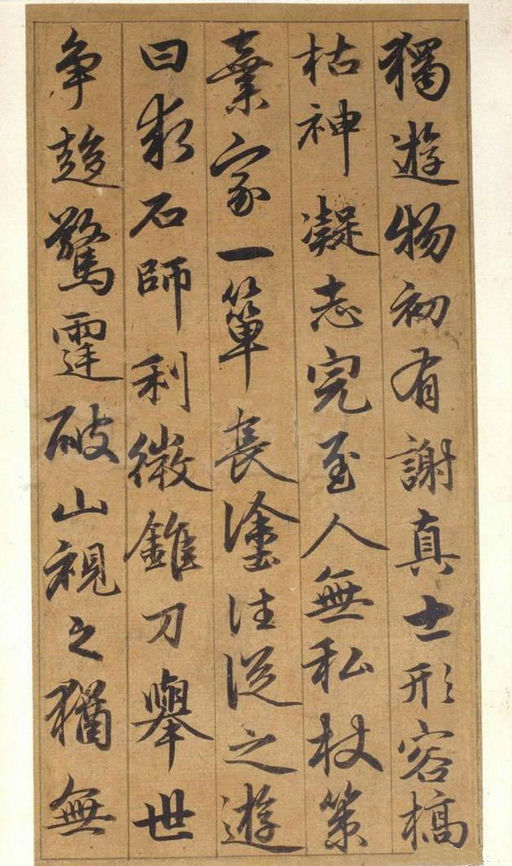 獨遊物初有謝真士形容槁
枯神凝志完至人無私杖策
棄家一簞長塗往從之遊
曰石師利徵錐刀舉世
争趨驚霆破山視之猶無